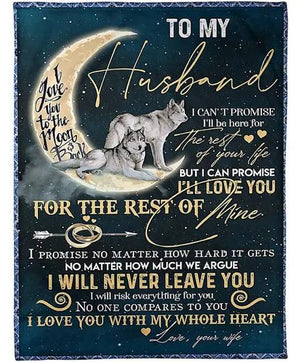 TO MY
Husband
I Love
you
to the
Moon &
Back
I CAN'T PROMISE
I'll be here for
The rest
of your life
BUT I CAN PROMISE
I'LL LOVE YOU
FOR THE REST OF
Mine
I PROMISE NO MATTER HOW HARD IT GETS
NO MATTER HOW MUCH WE ARGUE
I WILL NEVER LEAVE YOU
I will risk everything for you
NO ONE COMPARES TO YOU
I LOVE YOU WITH MY WHOLE HEART
Love, your wife